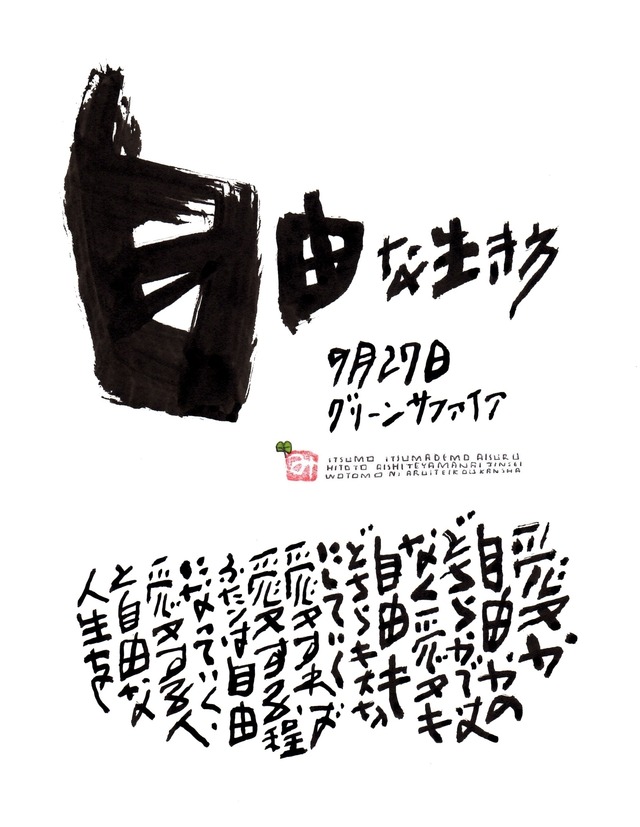 自由な生き方
9月27日
グリーンサファイア
み
ITSUMO ITSUMADEMO AISURU
HITOTO AISHITEYAMANAI JINSEI
WOTOMO NI ARUITEIKOU KANSHA
愛か
自由かの
どちらかでは
なく愛も
自由も
どちらも大切
にしていく
愛すれば
愛する程
ふたりは自由
になっていく
愛する人
と自由な
人生を